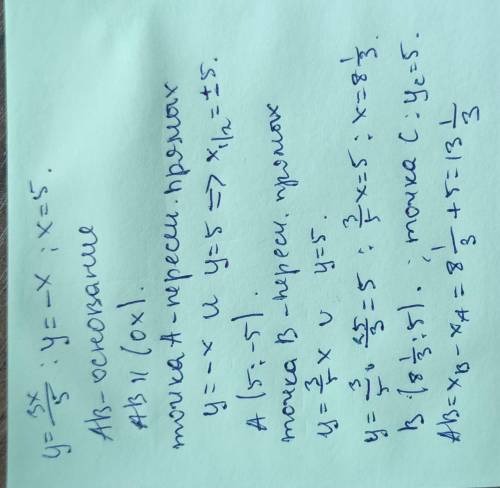 y = 3x/5 ; y = -x ; x = 5.
AB - основание
AB || (ox).
точка A - пересеч. прямых
y = -x и y = 5 => x₁/₂ = ±5.
A (5; -5)
точка B - пересеч. прямых
y = 3/5 x и y = 5.
y = 3/5 · 25/3 = 5 ; 3/5 x = 5 ; x = 8 1/3.
B (8 1/3; 5). ; точка C : y_c = 5.
AB = x_B - x_A = 8 1/3 + 5 = 13 1/3